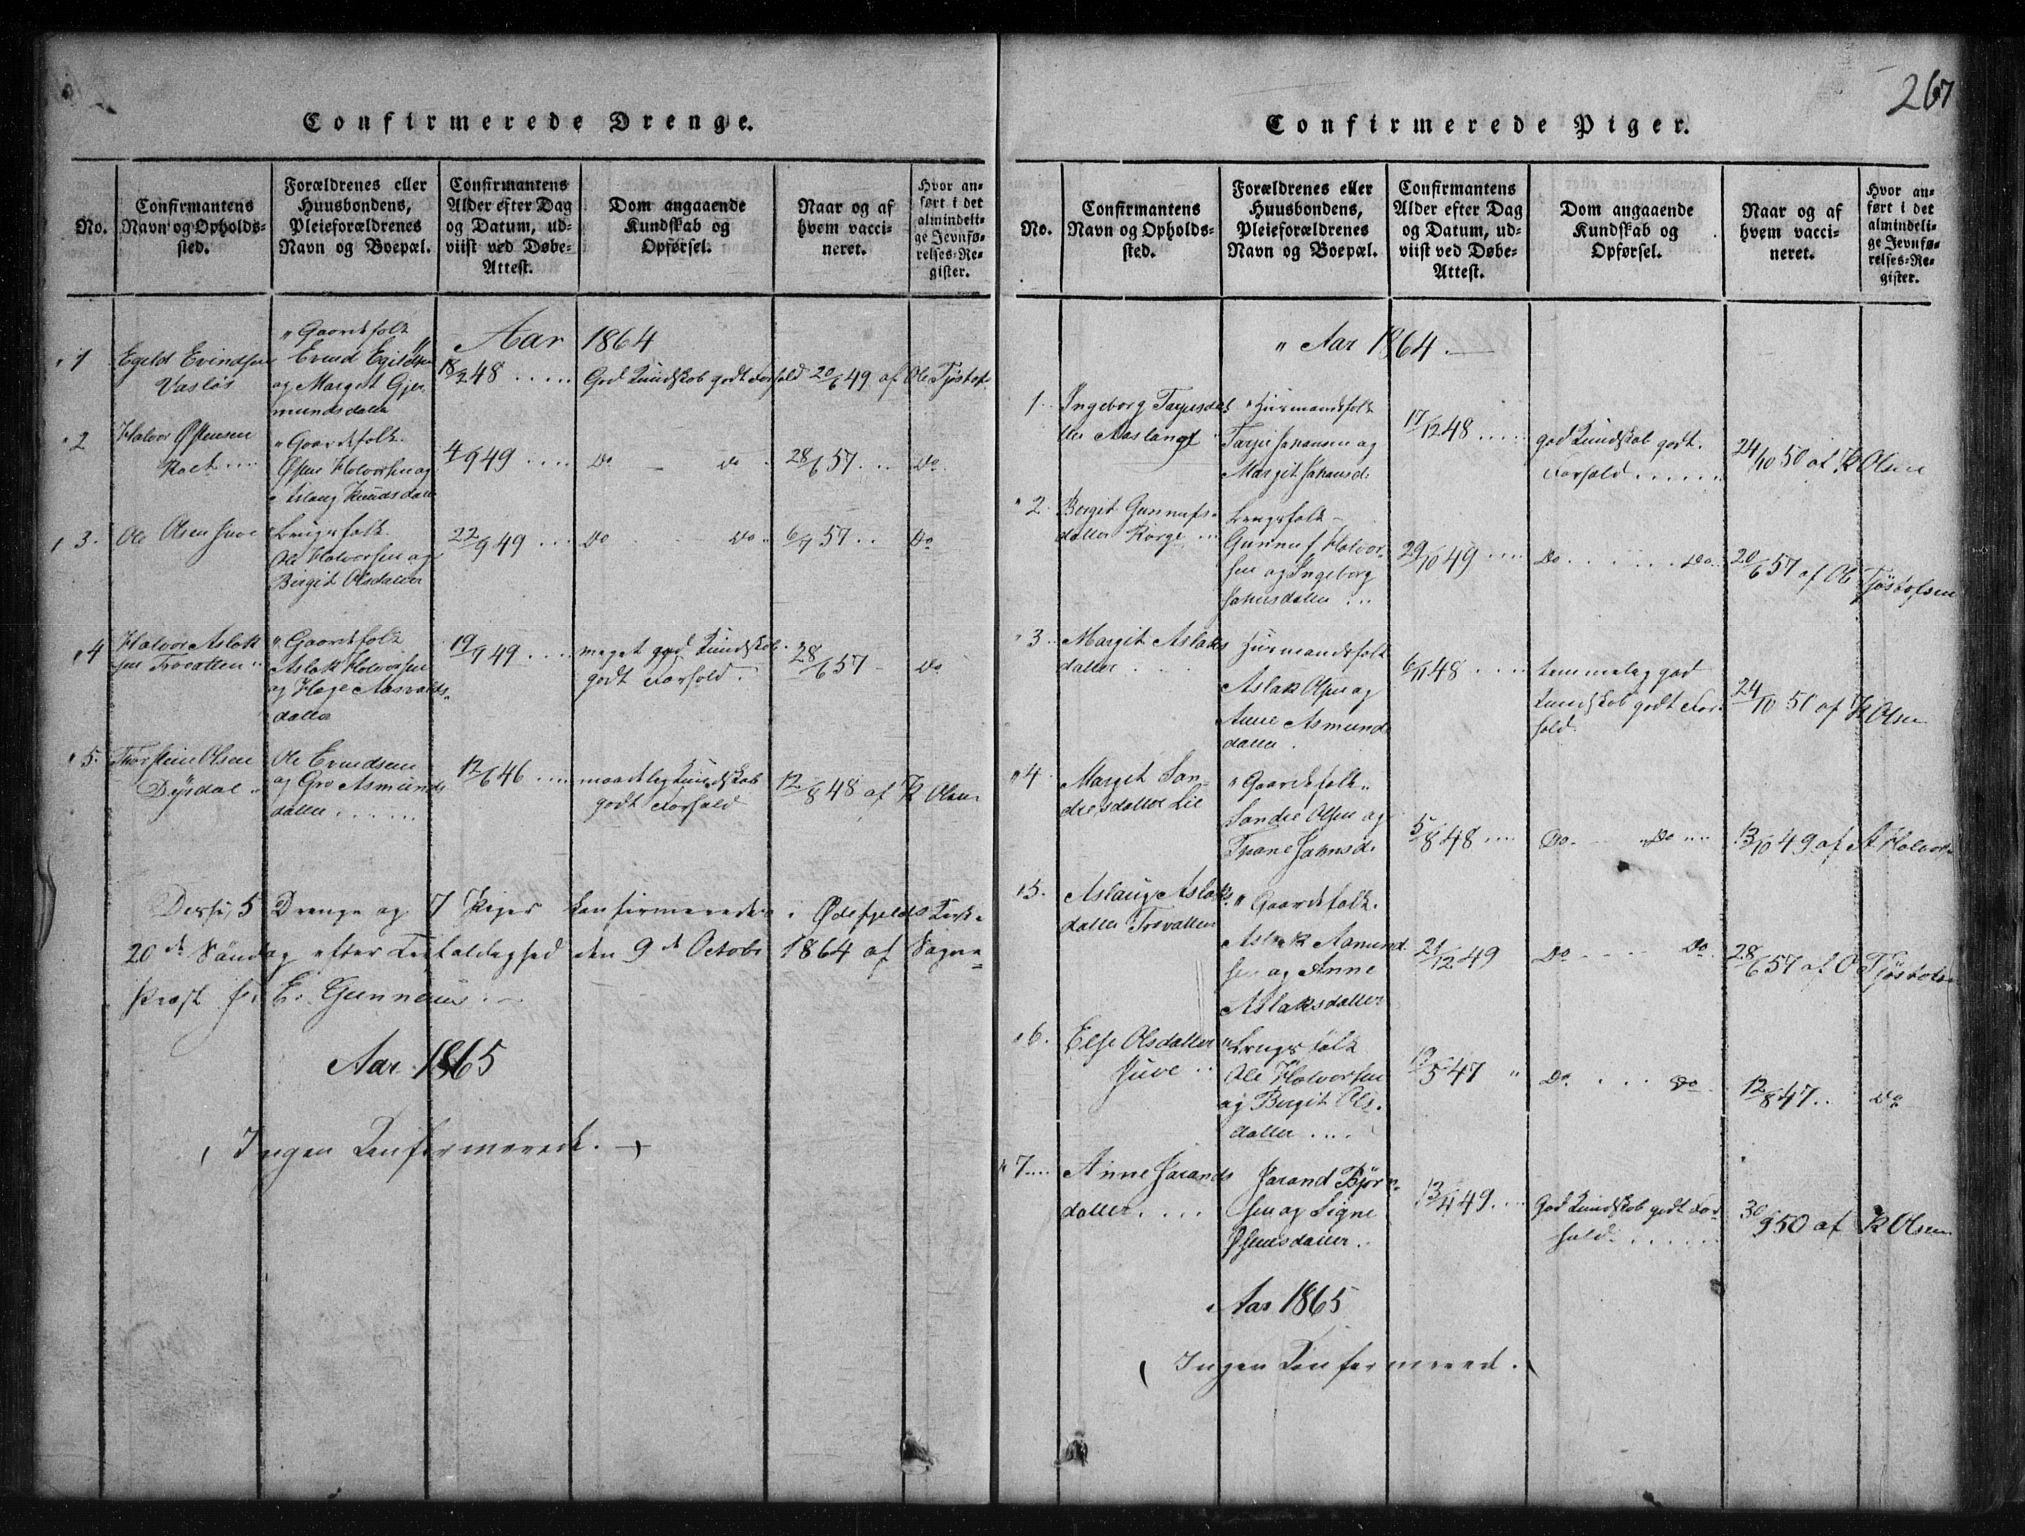 267
Confirmerede Drenge.
No.
Confirmantens Navn og Opholds-sted.
Forældrenes eller Huusbondens, Pleieforældrenes Navn og Boepæl.
Confirmantens Alder efter Dag og Datum, ud-viist ved Døbe-Attest.
Dom angaaende Kundskab og Opførsel.
Naar og af hvem vacci-neret.
Hvor an-ført i det almindeli-ge Jevnfø-relses-Re-gister.
Aar 1864
1
Egeld Evindsen
Vasløs
" Gaardfolk "
Evind Egeldsen
og Margit Gjer-
mundsdatter
18/2 48 .....
God Kundskab godt Forhold
20/6 49 af Ole Tjøstofs
2
Halvor Østensen
Roet ....
" Gaardfolk.
Østen Halvorsen og
Aslaug Knudsdatter
4/9 49 ....
Do Do
28/6 57 ...
Do.
3.
Ole Olsen Juve
Brugsfolk
Ole Halvorsen og
Birgit Olsdatter
22/9 49 ...
Do Do.
6/9 57 ..
Do
4
Halvor Aslak
sen Trovatten "
" Gaardfolk
Aslak Halvorsen
og Hæge Aasvalds-
datter
19/9 49 ....
meget god Kundskab.
godt Forhold.
28/6 57 -
Do.
5.
Thorstein Olsen
Dÿrdal "
Ole Evindsen
og Gro Asmunds
datter ......
12/6 46 ....
maadeleg Kundskab
godt Forhold
12/8 48 af K Olsen
Disse, 5 Drenge og 7 Piger Confirmerede i Ødefjelds Kirke
20de Søndag efter Trefoldeghed den 9de Octobr 1864 af Sogne=
Præst hr. E. Gunnerus. -
Aar 1865
( Ingen Confermerede. )
Confirmerede Piger.
No.
Confirmantens Navn og Opholds-sted.
Forældrenes eller Huusbondens, Pleieforældrenes Navn og Boepæl.
Confirmantens Alder efter Dag og Datum, ud-viist ved Døbe-Attest.
Dom angaaende Kundskab og Opførsel.
Naar og af hvem vacci-neret.
Hvor an-ført i det almindeli-ge Jevnfø-relses-Re-gister.
" Aar 1864.
1
Ingeborg Tarjesdat
ter Aaslandt
" Husmandsfolk
Tarjei Johansen og
Margit Johansd.
17/12 48 .....
god Kundskab godt.
Forhold ......
24/10 50 af K Olsen
2
Bergit Gunnufs-
datter Korge ...
Brugsfolk -
Gunnuf Halvor-
sen og Ingeborg
Johnsdatter ...
29/10 49 ....
Do ...... Do.
20/6 57 af Ole Tjøstofsen
3
Margit Aslaks
datter
Husmandsfolk
Aslak Olsen og
Anne Asmunds
datter.
6/11 48 ....
temmeleg god
Kundskab godt For-
hold.
24/10 51 af K Olsen
4
Margit San-
dresdatter Lie
" Gaardfolk "
Sandre Olsen og
Thone Johnsd.
5/8 48 ....
Do. Do ....
13/10 49 af A Halvors
5.
Aslaug Aslaks.
datter Trovatten
" Gaardfolk.
Aslak Asmund
sen og Anne
Aslaksdatter
21/12 49
Do .... Do.
28/6 57 af O Tjøstofsen
6.
Else Olsdatter
Juve ..
Brugsfolk
Ole Halvorsen
og Bergit Ols.
datter ....
19/5 47 "
Do. ... Do
12/8 47 ..
Do.
7...
Anne Jarands
datter ....
Jarand Bjørn-
sen og Signe
Østensdatter.
13/4 49 ...
God Kundskab godt For-
hold ......
30/9 50 af K Olsen
Aar 1865
( Ingen Confermered. )